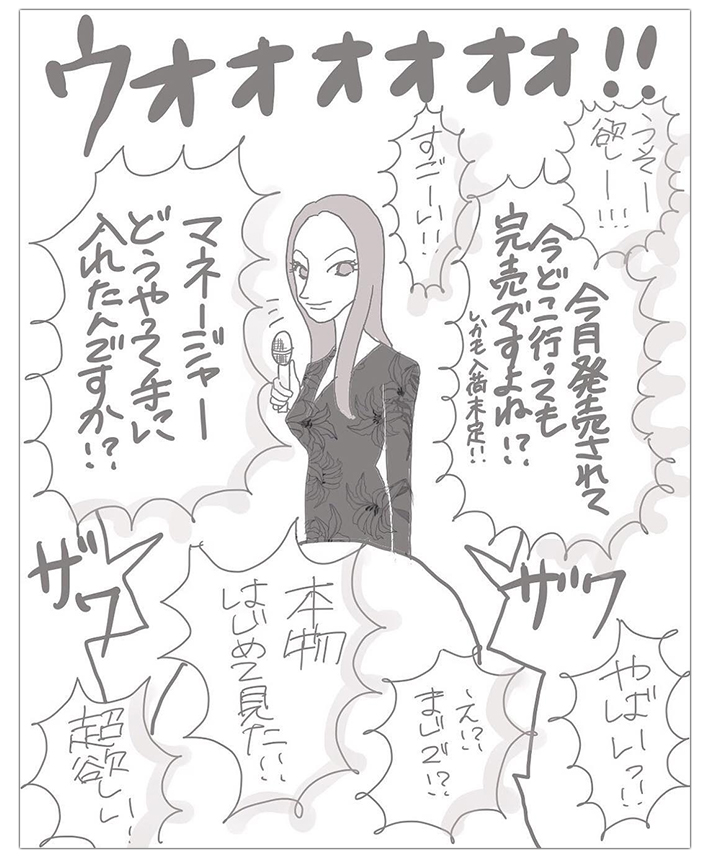 ウオオオオオオ!!
うそー
欲しー!!!
すごーい!!
今月発売されて
今どこ行っても
完売ですよね!?
しかも入荷未定!!
マネージャー
どうやって手に
入れたんですか!?
ザワ
ザワ
やばいっ!!
え!?
まじで!?
本物
はじめて見た!!
超欲しい!